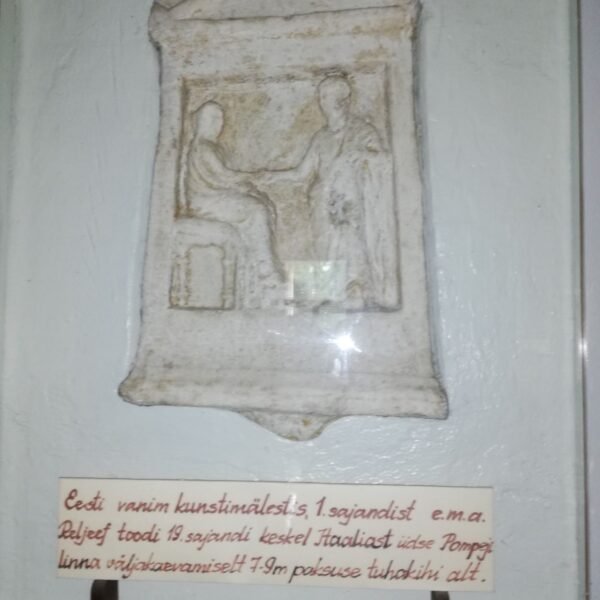 Eesti vanim kunstimälestis, 1. sajandist e.m.a.
Reljeef toodi 19. sajandi keskel Itaaliast üdse Pompeji
linna väljakaevamiselt 7-9m paksuse tuhakihi alt.